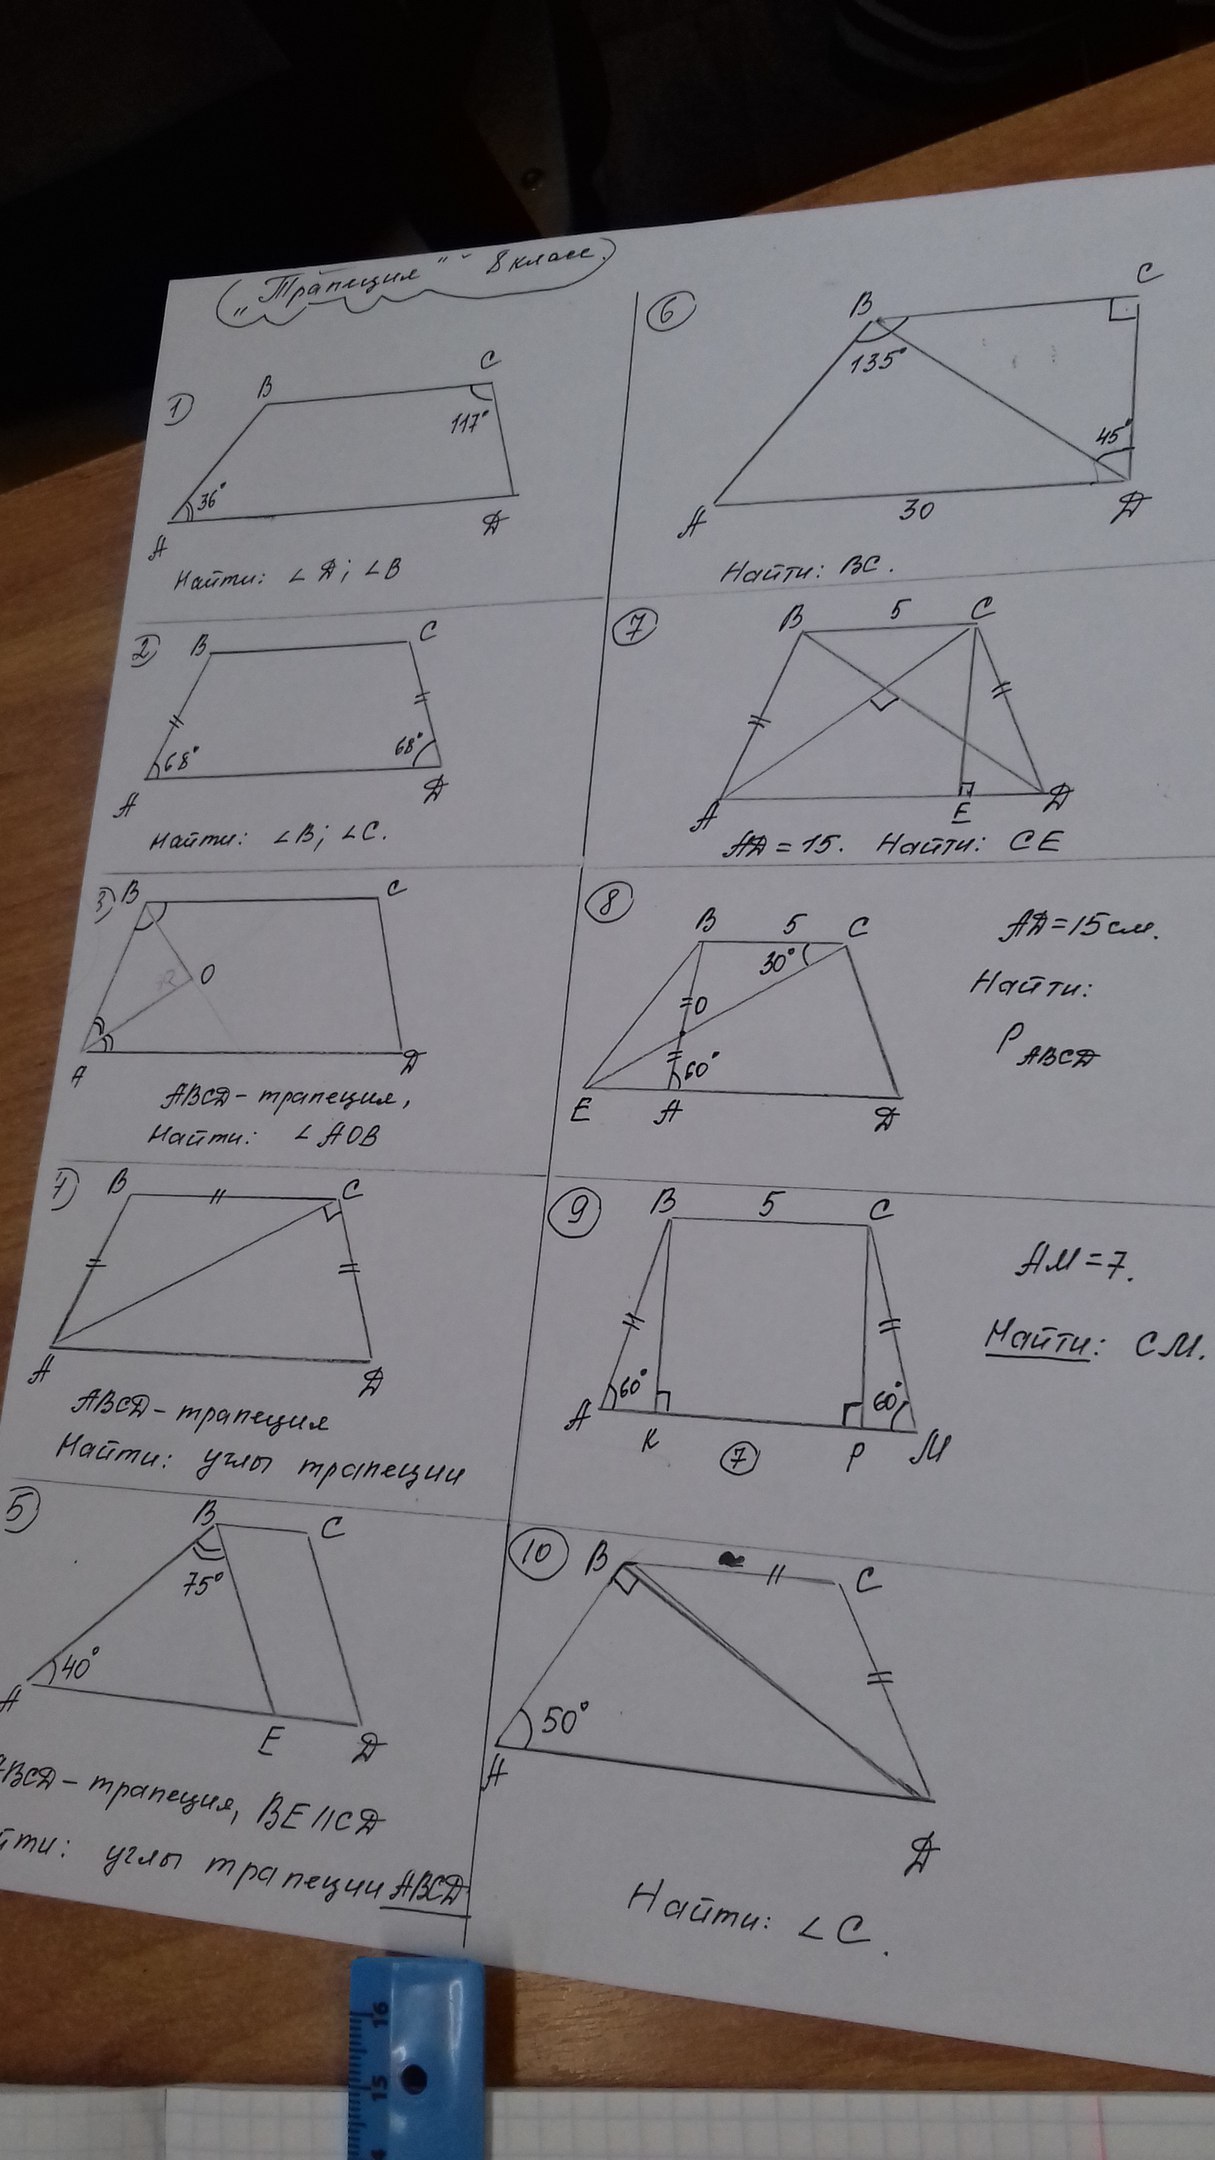 „Трапеция" - 8 класс.
1)
B
C
117°
36°
A
D
Найти: ∠D; ∠B
2)
B
C
68°
68°
A
D
Найти: ∠B; ∠C.
3)
B
C
O
A
D
ABCD - трапеция,
Найти: ∠AOB
B
C
A
D
ABCD - трапеция
Найти: углы трапеции
5)
B
C
75°
40°
A
E
D
ABCD - трапеция, BE || CD
йти: углы трапеции ABCD
6
B
C
135°
45°
A
30
D
Найти: BC.
7
B
5
C
A
E
D
AD = 15. Найти: CE
8
B
5
C
30°
O
60°
E
A
D
AD = 15 см.
Найти:
P ABCD
9
B
5
C
60°
60°
A
K
7
P
M
AM = 7.
Найти: CM.
10
B
C
50°
A
D
Найти: ∠C.
16
15